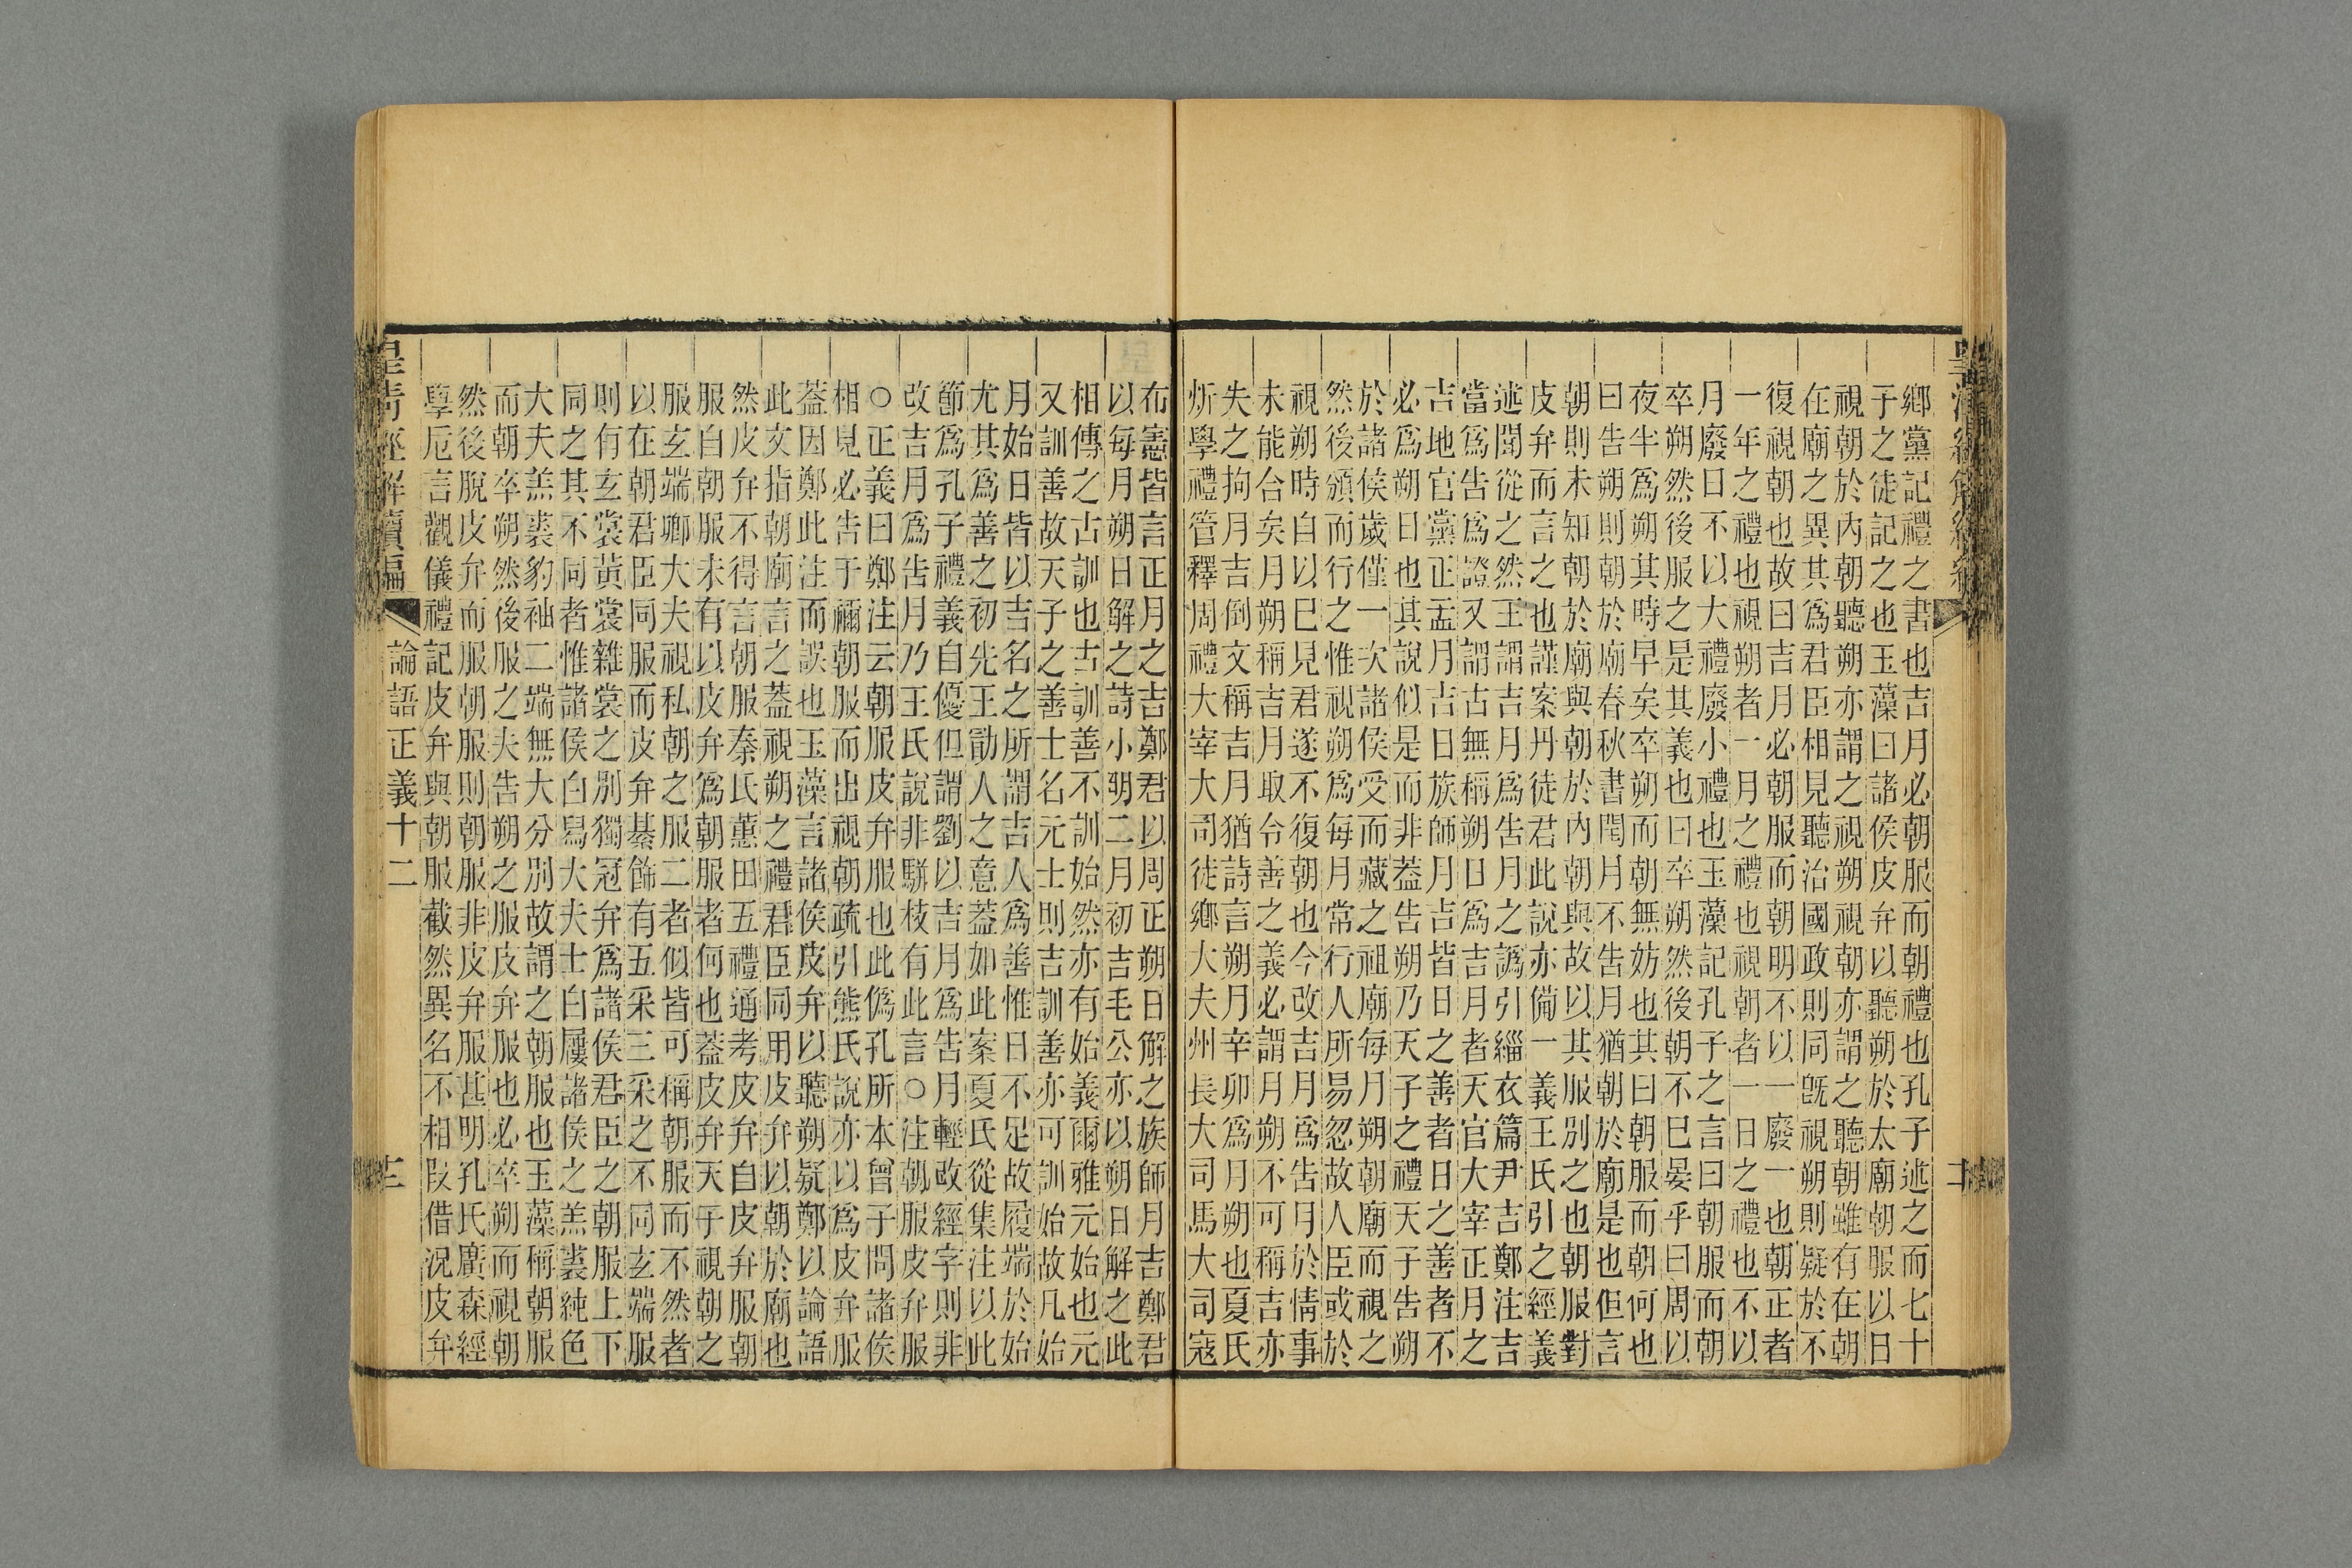 鄉黨記禮之書也吉月必朝服而朝禮也孔子述之而七十
子之徒記之也玉藻曰諸侯皮弁以聽朔於太廟朝服以日
視朝於內朝聽朔亦謂之視朔視朝亦謂之聽朝雖有在朝
在廟之異其爲君臣相見聽治國政則同旣視朔則疑於不
復視朝也故曰吉月必朝服而朝明不以一廢一也朝正者
一年之禮也視朔者一月之禮也視朝者一日之禮也不以
月廢日不以大禮廢小禮也玉藻記孔子之言曰朝服而朝
卒朔然後服之是其義也曰卒朔然後朝不巳晏乎曰周以
夜半爲朔其時早矣卒朔而朝無妨也其曰朝服而朝何也
曰告朔則朝於廟春秋書閏月不告月猶朝於廟是也但言
朝則未知朝於廟與朝於內朝與故以其服別之也朝服對
皮弁而言之也謹案丹徒君此說亦備一義王氏引之經義
述聞從之然王謂吉月爲告月之譌引緇衣篇尹吉鄭注吉
當爲告爲證又謂古無稱朔日爲吉月者天官大宰正月之
吉地官黨正孟月吉日族師月吉皆日之善者日之善者不
必爲朔日也其說似是而非蓋告朔乃天子之禮天子告朔
於諸侯歲僅一次諸侯受而藏之祖廟每月朔朝廟而視之
然後頒而行之惟視朔爲每月常行人所易忽故人臣或於
視朔時自以巳見君遂不復朝也今改吉月爲告月於情事
未能合矣月朔稱吉月取令善之義必謂月朔不可稱吉亦
失之拘月吉倒文稱吉月猶詩言朔月辛卯爲月朔也夏氏
炘學禮管釋周禮大宰大司徒鄉大夫州長大司馬大司寇
布憲皆言正月之吉鄭君以周正朔日解之族師月吉鄭君
以每月朔日解之詩小明二月初吉毛公亦以朔日解之此
相傳之古訓也古訓善不訓始然亦有始義爾雅元始也元
又訓善故天子之善士名元士則吉訓善亦可訓始故凡始
月始日皆以吉名之所謂吉人爲善惟日不足故履端於始
尤其爲善之初先王勖人之意蓋如此案夏氏從集注以此
節爲孔子禮義自優但謂劉以吉月爲告月輕改經字則非
改吉月爲告月乃王氏說非駢枝有此言○注朝服皮弁服
○正義曰鄭注云朝服皮弁服也此僞孔所本曾子問諸侯
相見必告于禰朝服而出視朝疏引熊氏說亦以爲皮弁服
蓋因鄭此注而誤也玉藻言諸侯皮弁以聽朔疑鄭以論語
此文指朝廟言之蓋視朔之禮君臣同用皮弁以朝於廟也
然皮弁不得言朝服秦氏蕙田五禮通考皮弁自皮弁服朝
服自朝服未有以皮弁爲朝服者何也蓋皮弁天子視朝之
服玄端卿大夫視私朝之服二者似皆可稱朝服而不然者
以在朝君臣同服而皮弁綦飾有五采三采之不同玄端服
則有玄裳黃裳雜裳之別獨冠弁爲諸侯君臣之朝服上下
同之其不同者惟諸侯白舄大夫士白屨諸侯之羔裘純色
大夫羔裘豹袖二端無大分別故謂之朝服也玉藻稱朝服
而朝卒朔然後服之夫告朔之服皮弁服也必卒朔而視朝
然後脫皮弁而服朝服則朝服非皮弁服甚明孔氏廣森經
學卮言觀儀禮記皮弁與朝服截然異名不相叚借況皮弁
皇清經解續編 論語正義十二